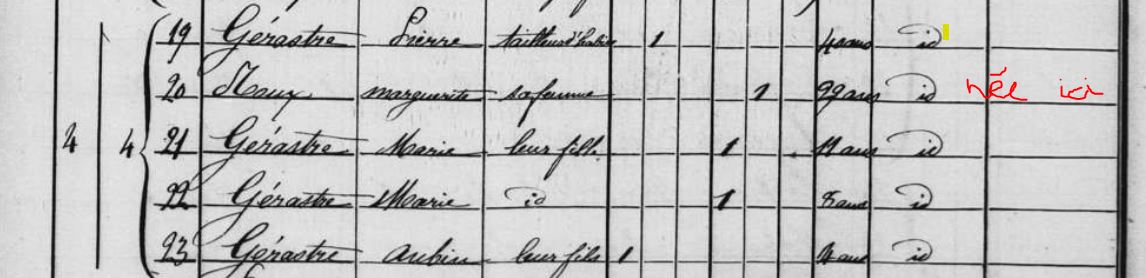 19 Gérastre Pierre tailleur d'habits 1 40 ans id
20 Roux marguerite sa femme 1 29 ans id née ici
2 4 21 Gérastre Marie leur fille 1 11 ans id
22 Gérastre Marie id 1 8 ans id
23 Gérastre Aubin leur fils 1 id